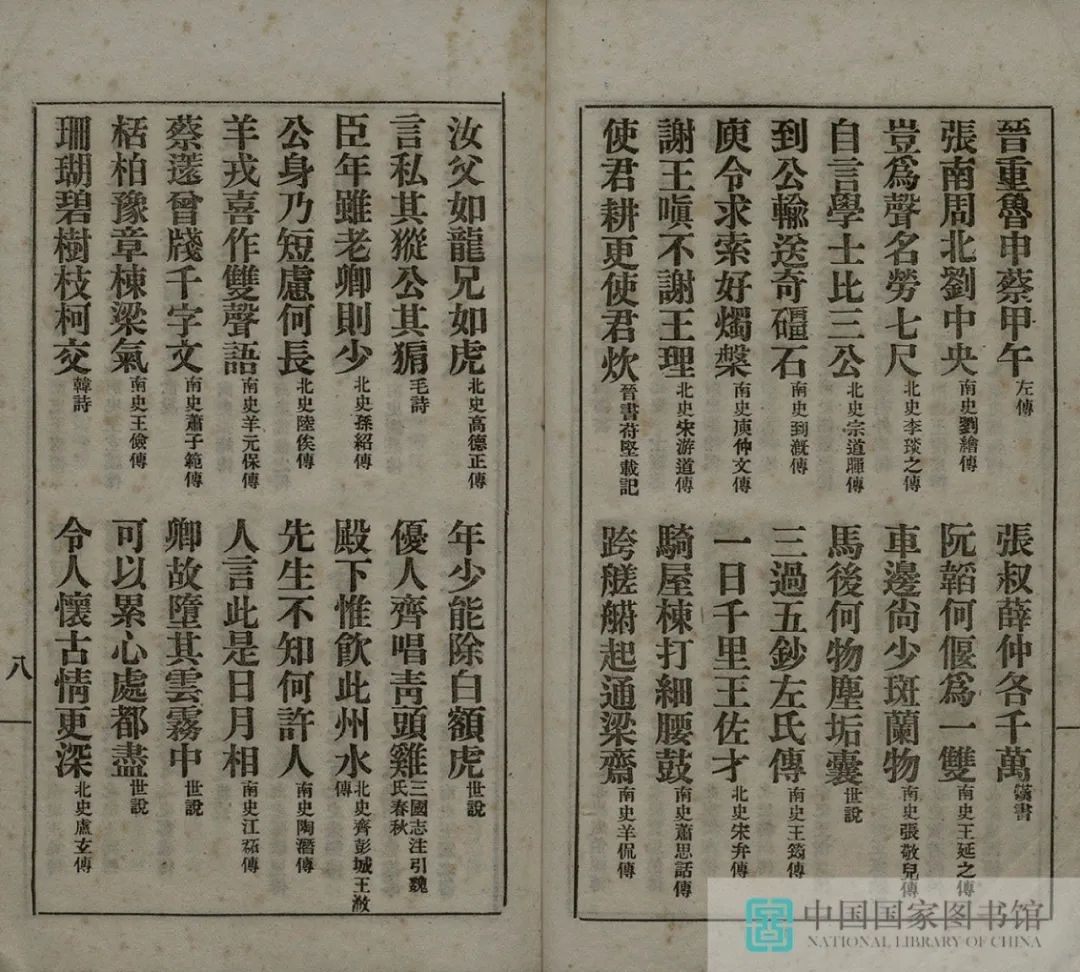 晉重魯申蔡甲午 左傳 張叔薛仲各千萬 漢書
張南周北劉中央 南史劉繪傳 阮韜何偃爲一雙 南史王延之傳
豈爲聲名勞七尺 北史李琰之傳 車邊尙少斑蘭物 南史張敬兒傳
自言學士比三公 北史宗道暉傳 馬後何物塵垢囊 世說
到公輸送奇礓石 南史到漑傳 三過五鈔左氏傳 南史王筠傳
庾令求索好燭槃 南史庾仲文傳 一日千里王佐才 北史宋弁傳
謝王嗔不謝王理 北史宋游道傳 騎屋棟打細腰鼓 南史蕭思話傳
使君耕更使君炊 晉書苻堅載記 跨艖䑽起通梁齋 南史羊侃傳
汝父如龍兄如虎 北史高德正傳 年少能除白額虎 世說
言私其豵公其豜 毛詩 優人齊唱靑頭雞 三國志注引魏氏春秋
臣年雖老卿則少 北史孫紹傳 殿下惟飮此州水 北史齊彭城王浟傳
公身乃短慮何長 北史陸俟傳 先生不知何許人 南史陶潛傳
羊戎喜作雙聲語 南史羊元保傳 人言此是日月相 南史江祏傳
蔡薳曾牋千字文 南史蕭子範傳 卿故墮其雲霧中 世說
栝柏豫章棟梁氣 南史王儉傳 可以累心處都盡 世說
珊瑚碧樹枝柯交 韓詩 令人懷古情更深 北史盧玄傳
八
中国国家图书馆
NATIONAL LIBRARY OF CHINA